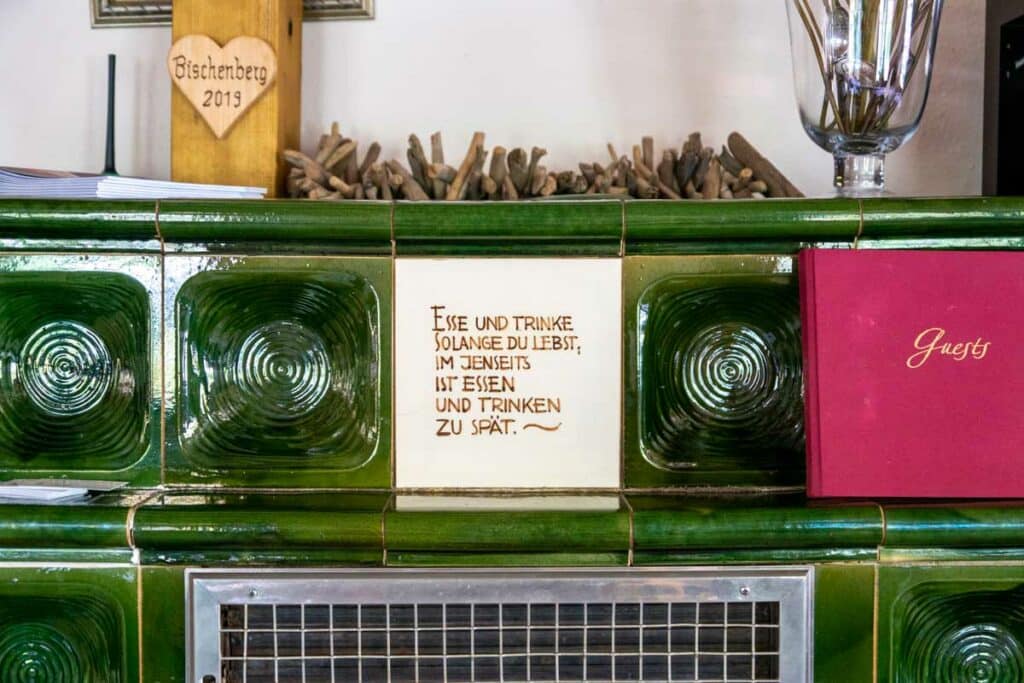 Bischenberg
2019
ESSE UND TRINKE
SOLANGE DU LEBST,
IM JENSEITS
IST ESSEN
UND TRINKEN
ZU SPÄT.
Guests